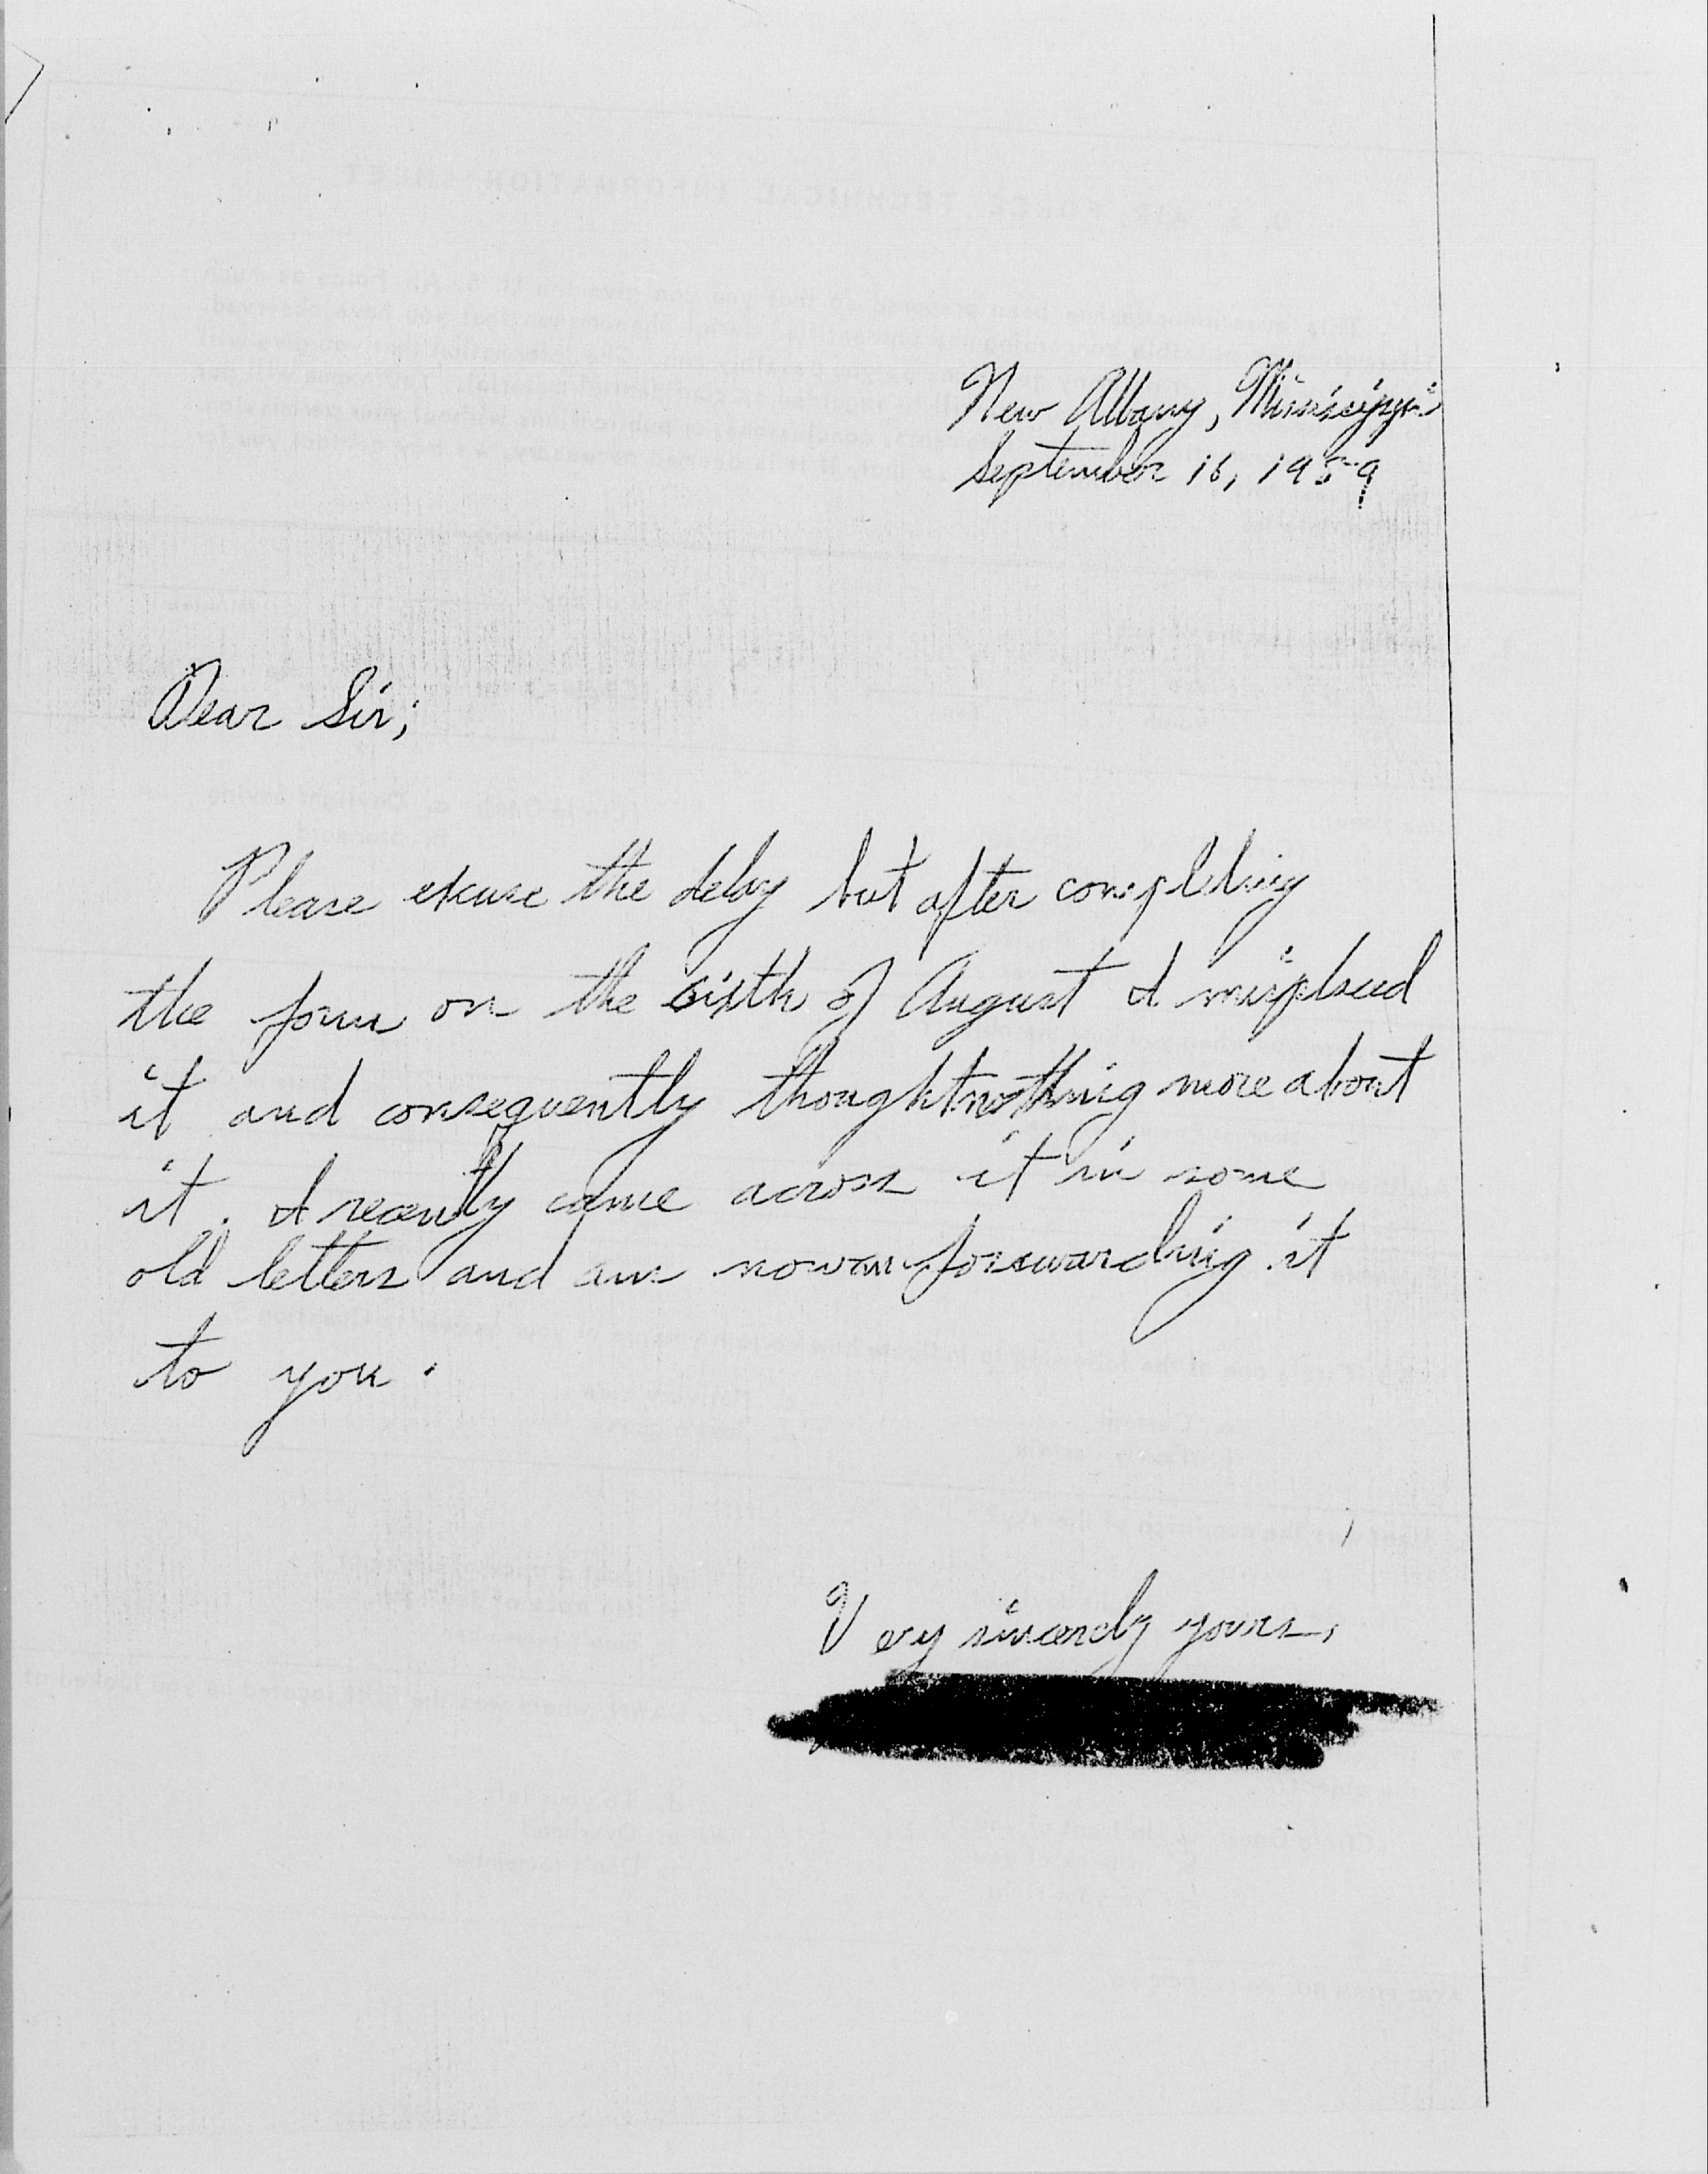 New Albany, Mississippi
September 16, 1959
Dear Sir;
Please excuse the delay but after completing
the form on the sixth of August I misplaced
it and consequently thought nothing more about
it. I recently came across it in some
old letters and am now forwarding it
to you.
Very sincerely yours,